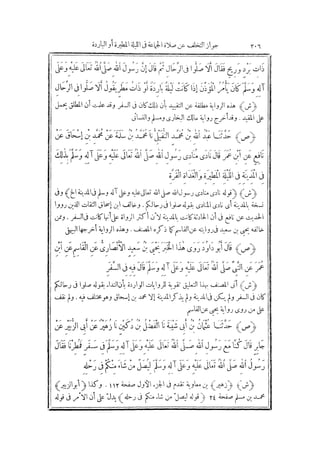 ٢٠٦ جواز التخلف عن صلاة الجماعة فى الليلة المطيرة أو الباردة
ذَاتِ بَرْدٍ وَرِيحٍ فَقَالَ أَلَا صَلُّوا فِى الرِّحَالِ ثُمَّ قَالَ إِنَّ رَسُولَ اللهِ صَلَّى اللهُ تَعَالَى عَلَيْهِ وَعَلَى
آلِهِ وَسَلَّمَ كَانَ يَأْمُرُ الْمُؤَذِّنَ إِذَا كَانَتْ لَيْلَةٌ بَارِدَةٌ أَوْ ذَاتُ مَطَرٍ يَقُولُ أَلَا صَلُّوا فِى الرِّحَالِ
﴿ش﴾ هذه الرواية مطلقة عن التقييد بأن ذلك كان فى السفر وقد علمت أن المطلق يحمل
على المقيد. وقد أخرج رواية مالك البخارى ومسلم والنسائى
﴿ص﴾ حَدَّثَنَا عَبْدُ اللهِ بْنُ مُحَمَّدٍ النُّفَيْلِىُّ نَا مُحَمَّدُ بْنُ سَلَمَةَ عَنْ مُحَمَّدِ بْنِ إِسْحَاقَ عَنْ
نَافِعٍ عَنِ ابْنِ عُمَرَ قَالَ نَادَى مُنَادِى رَسُولِ اللهِ صَلَّى اللهُ تَعَالَى عَلَيْهِ وَعَلَى آلِهِ وَسَلَّمَ بِذٰلِكَ
فِى الْمَدِينَةِ فِى اللَّيْلَةِ الْمَطِيرَةِ وَالْغَدَاةِ الْقَرَّةِ
﴿ش﴾ ﴿قوله نادى منادى رسول الله صلى الله تعالى عليه وعلى آله وسلم فى المدينة الخ﴾ وفى
نسخة بالمدينة أى نادى المنادى بقوله صلوا فى رحالكم. وخالف ابن إسحاق الثقات الذين رووا
الحديث عن نافع فى أن الحادثة كانت بالمدينة لأن أكثر الرواة على أنها كانت فى السفر. وممن
خالفه يحيى بن سعيد فى روايته عن القاسم كما ذكره المصنف. وهذه الرواية أخرجها البيهقى
﴿ص﴾ قَالَ أَبُو دَاوُدَ رَوَى هٰذَا الْخَبَرَ يَحْيَى بْنُ سَعِيدٍ الْأَنْصَارِىُّ عَنِ الْقَاسِمِ عَنِ ابْنِ
عُمَرَ عَنِ النَّبِىِّ صَلَّى اللهُ تَعَالَى عَلَيْهِ وَعَلَى آلِهِ وَسَلَّمَ قَالَ فِيهِ فِى السَّفَرِ
﴿ش﴾ أتى المصنف بهذا التعليق تقوية للروايات الواردة بأن النداء بقوله صلوا فى رحالكم
كان فى السفر ولم يكن فى المدينة ولم يذكر المدينة إلا محمد بن إسحاق وهو مختلف فيه. ولم نقف
على من روى رواية يحيى عن القاسم
﴿ص﴾ حَدَّثَنَا عُثْمَانُ بْنُ أَبِى شَيْبَةَ نَا الْفَضْلُ بْنُ دُكَيْنٍ نَا زُهَيْرٌ عَنْ أَبِى الزُّبَيْرِ عَنْ
جَابِرٍ قَالَ كُنَّا مَعَ رَسُولِ اللهِ صَلَّى اللهُ تَعَالَى عَلَيْهِ وَعَلَى آلِهِ وَسَلَّمَ فِى سَفَرٍ فَمُطِرْنَا فَقَالَ
رَسُولُ اللهِ صَلَّى اللهُ تَعَالَى عَلَيْهِ وَعَلَى آلِهِ وَسَلَّمَ لِيُصَلِّ مَنْ شَاءَ مِنْكُمْ فِى رَحْلِهِ
﴿ش﴾ ﴿زهير﴾ بن معاوية تقدم فى الجزء الأول صفحة ١١٢. وكذا ﴿أبو الزبير﴾
محمد بن مسلم صفحة ٢٤ ﴿قوله ليصل من شاء منكم فى رحله﴾ يدل على أن الأمر فى قوله